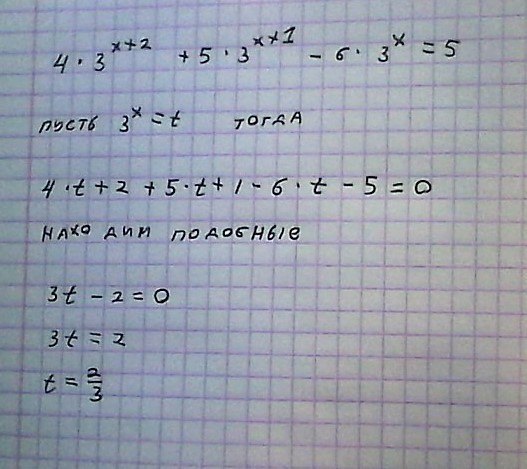 4 · 3^{x+2} + 5 · 3^{x+1} - 6 · 3^x = 5
пусть 3^x = t тогда
4 · t + 2 + 5 · t + 1 - 6 · t - 5 = 0
находим подобные
3t - 2 = 0
3t = 2
t = 2/3